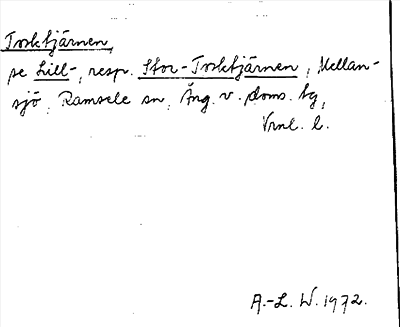 Torktjärnen,
se Lill-, resp. Stor-Torktjärnen, Mellan-
sjö, Ramsele sn, Ång. v. doms. tg,
Vrnl. l.
A.-L. W. 1972.